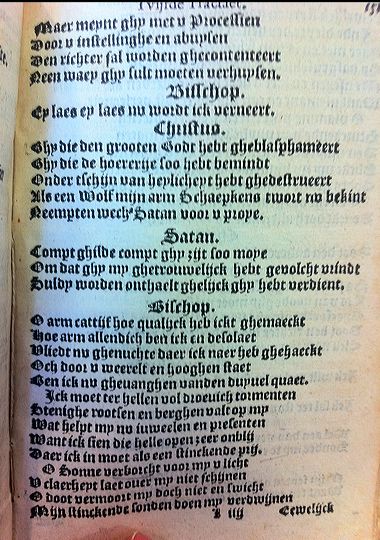 Vijfde Tractaet.
Maer meynt ghy met v Processien
Door v instellinghe en abuysen
Den richter sal worden ghecontenteert
Neen waey ghy sult moeten verhuysen.
Bisschop.
Ey laes ey laes nv wordt ick verneert.
Christus.
Ghy die den grooten Godt hebt gheblasphameert
Ghy die de hoererije soo hebt bemindt
Onder tschijn van heylicheyt hebt ghedestrueert
Als een Wolf mijn arm Schaepkens twort nv bekint
Neempten wech Satan voor v prope.
Satan.
Compt ghilde compt ghy zijt soo moye
Om dat ghy my ghetrouwelijck hebt gevolcht vrindt
Suldy worden onthaelt ghelijck ghy hebt verdient.
Bischop.
O arm cattijf hoe qualijck heb ickt ghemaeckt
Hoe arm allendich ben ick en desolaet
Vliedt nv ghenuchte daer ick naer heb ghehaeckt
Och door v weerelt en hooghen staet
Ben ick nv gheuanghen vanden duyuel quaet.
Ick moet ter hellen vol droeuich tormenten
Stenighe rootsen en berghen valt op my
Wat helpt my nv iuweelen en presenten
Want ick sien die helle open zeer onblij
Daer ick in moet als een stinckende prij.
O Sonne verborcht voor my v licht
V claerheyt laet ouer my niet schijnen
O doot vermoort my doch niet en swicht
Mijn stinckende sonden doen my verdwijnen
I iij Eewelijck